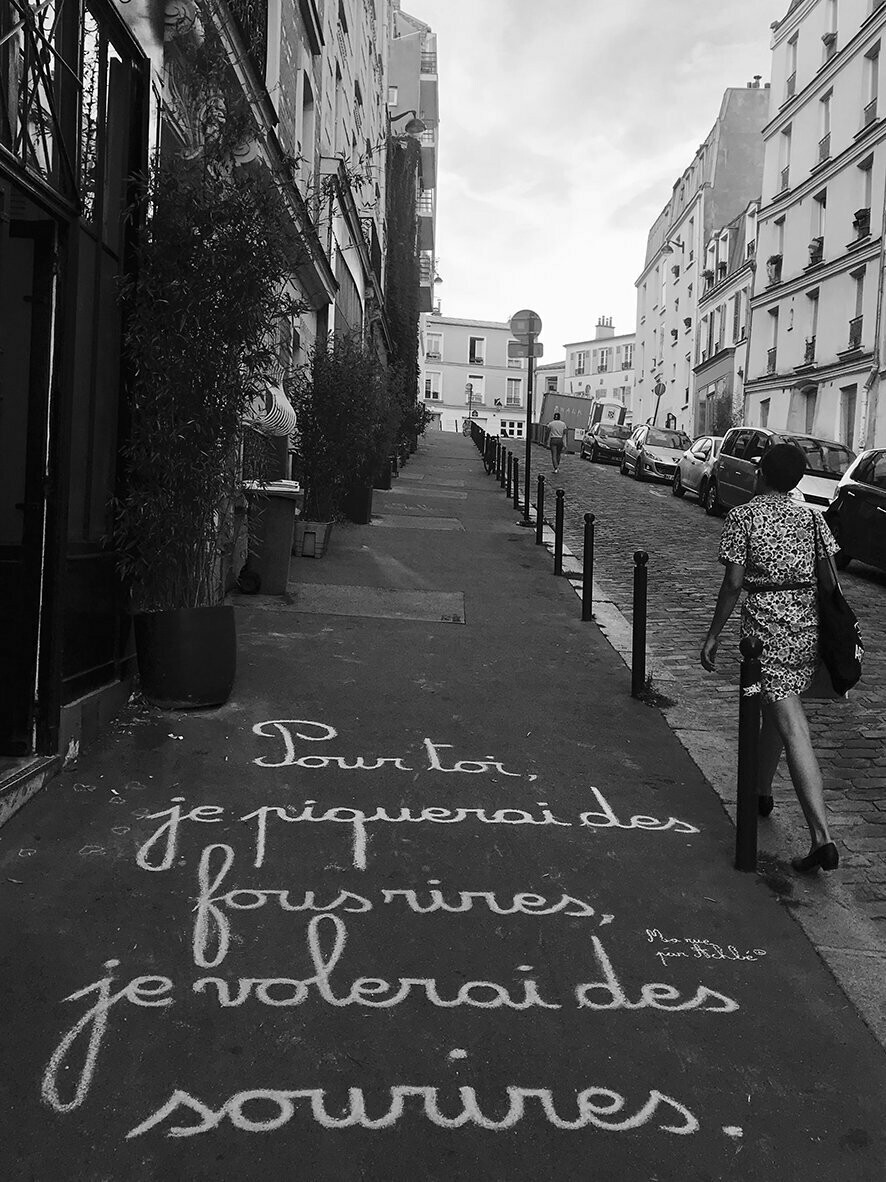 Pour toi,
je piquerai des
fous rires,
Ma rue
par Achbé
je volerai des
sourires.